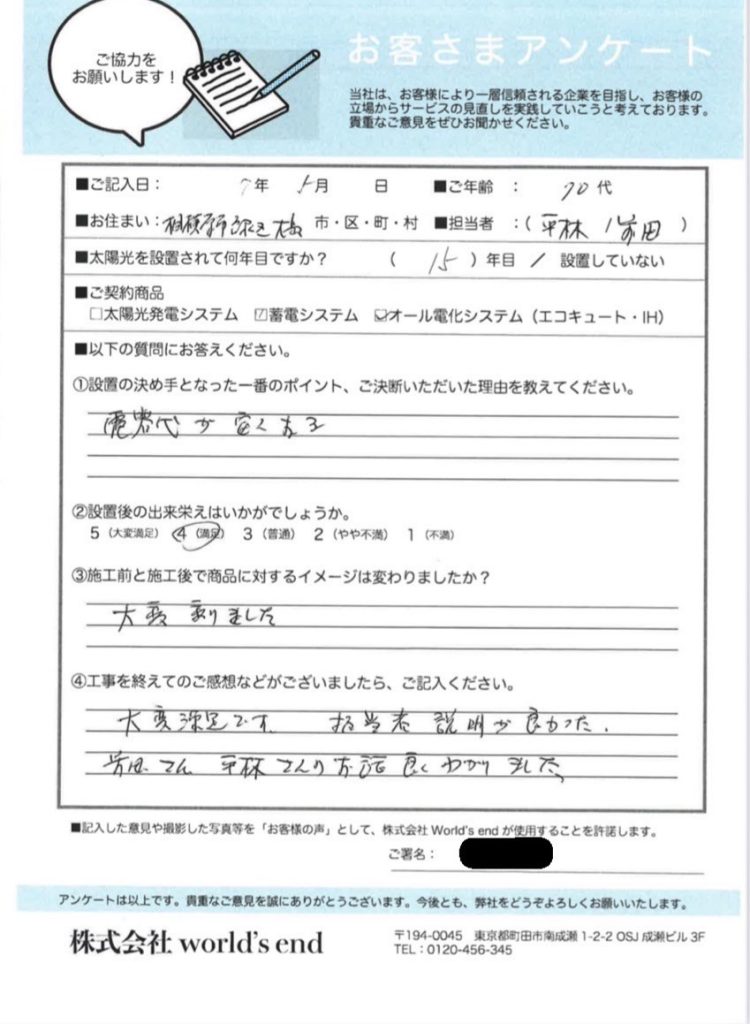 ご協力を
お願いします!
お客さまアンケート
当社は、お客様により一層信頼される企業を目指し、お客様の
立場からサービスの見直しを実践していこうと考えております。
貴重なご意見をぜひお聞かせください。
■ご記入日: 7年 5月 日 ■ご年齢 : 70代
■お住まい: 相模原 市・区・町・村 ■担当者 :( 平林 / 前田 )
■太陽光を設置されて何年目ですか? ( 15 )年目 / 設置していない
■ご契約商品
□太陽光発電システム ☑蓄電システム ☑オール電化システム(エコキュート・IH)
■以下の質問にお答えください。
①設置の決め手となった一番のポイント、ご決断いただいた理由を教えてください。
代が安くなる
②設置後の出来栄えはいかがでしょうか。
5(大変満足) 4(満足) 3(普通) 2(やや不満) 1(不満)
③施工前と施工後で商品に対するイメージは変わりましたか?
大変 変りました
④工事を終えてのご感想などがございましたら、ご記入ください。
大変満足です 担当者 説明が良かった.
さん 平林さんのお話良くわかりました。
■記入した意見や撮影した写真等を「お客様の声」として、株式会社World's endが使用することを許諾します。
ご署名:
アンケートは以上です。貴重なご意見を誠にありがとうございます。今後とも、弊社をどうぞよろしくお願いいたします。
株式会社 world's end
〒194-0045 東京都町田市南成瀬1-2-2 OSJ成瀬ビル3F
TEL:0120-456-345